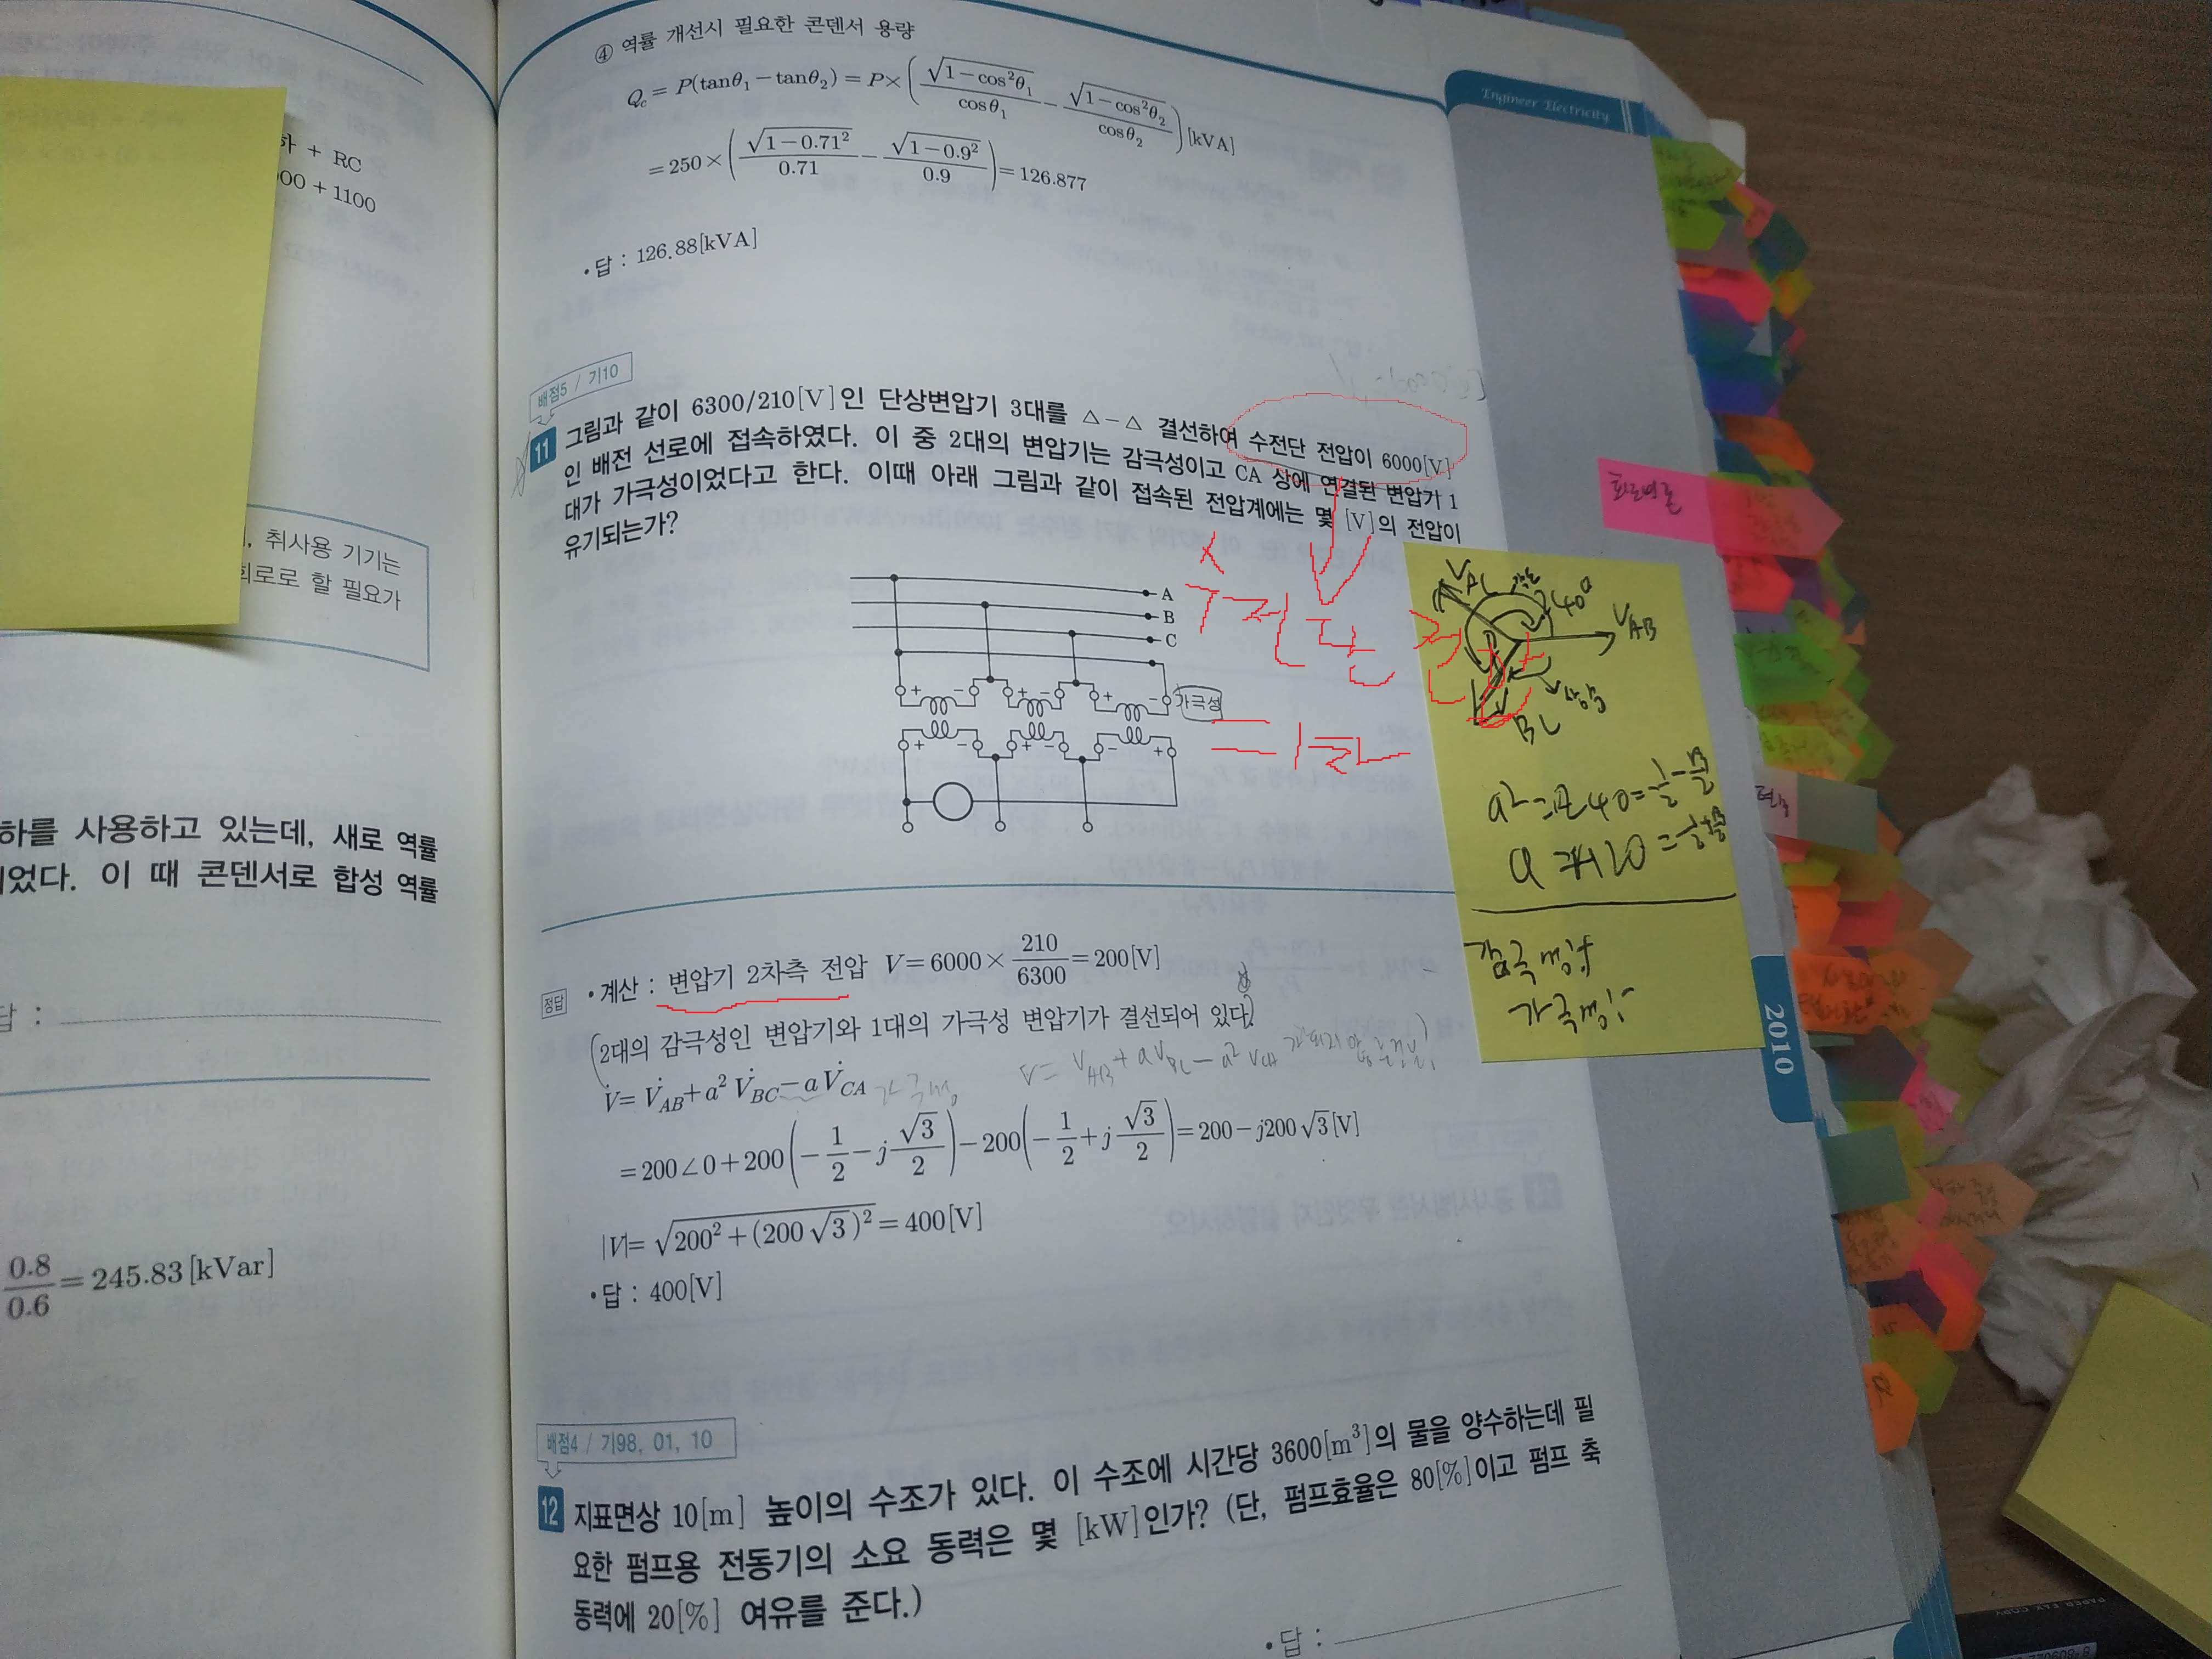 ④ 역률 개선시 필요한 콘덴서 용량
Q_c = P(tanθ₁ − tanθ₂) = P× ( √(1−cos²θ₁) / cosθ₁ − √(1−cos²θ₂) / cosθ₂ ) [kVA]
= 250 × ( √(1−0.71²) / 0.71 − √(1−0.9²) / 0.9 ) = 126.877
• 답 : 126.88[kVA]
Engineer Electricity
하 + RC
00 + 1100
, 취사용 기기는
회로로 할 필요가
하를 사용하고 있는데, 새로 역률
되었다. 이 때 콘덴서로 합성 역률
답 :
0.8 / 0.6 = 245.83[kVar]
배점5 / 기10
11 그림과 같이 6300/210[V]인 단상변압기 3대를 △−△ 결선하여 수전단 전압이 6000[V]
인 배전 선로에 접속하였다. 이 중 2대의 변압기는 감극성이고 CA 상에 연결된 변압기 1
대가 가극성이었다고 한다. 이때 아래 그림과 같이 접속된 전압계에는 몇 [V]의 전압이
유기되는가?
A
B
C
+ − + − + −
가극성
+ − + − − +
수전단 전압
=1차
회로변환
V_BC
240°
V_AB
a² = ∠240 = −1/2 −
a = ∠120 = −1/2 +
감극성 : +
가극성 : −
2010
정답 • 계산 : 변압기 2차측 전압 V = 6000 × 210 / 6300 = 200[V]
2대의 감극성인 변압기와 1대의 가극성 변압기가 결선되어 있다.
V̇ = V̇_AB + a² V̇_BC − a V̇_CA 가극성
V = V_AB + a V_BC − a² V_CA
= 200∠0 + 200 ( −1/2 − j √3/2 ) − 200 ( −1/2 + j √3/2 ) = 200 − j200√3 [V]
|V| = √(200² + (200√3)²) = 400[V]
• 답 : 400[V]
배점4 / 기98, 01, 10
12 지표면상 10[m] 높이의 수조가 있다. 이 수조에 시간당 3600[m³]의 물을 양수하는데 필
요한 펌프용 전동기의 소요 동력은 몇 [kW]인가? (단, 펌프효율은 80[%]이고 펌프 축
동력에 20[%] 여유를 준다.)
• 답 :